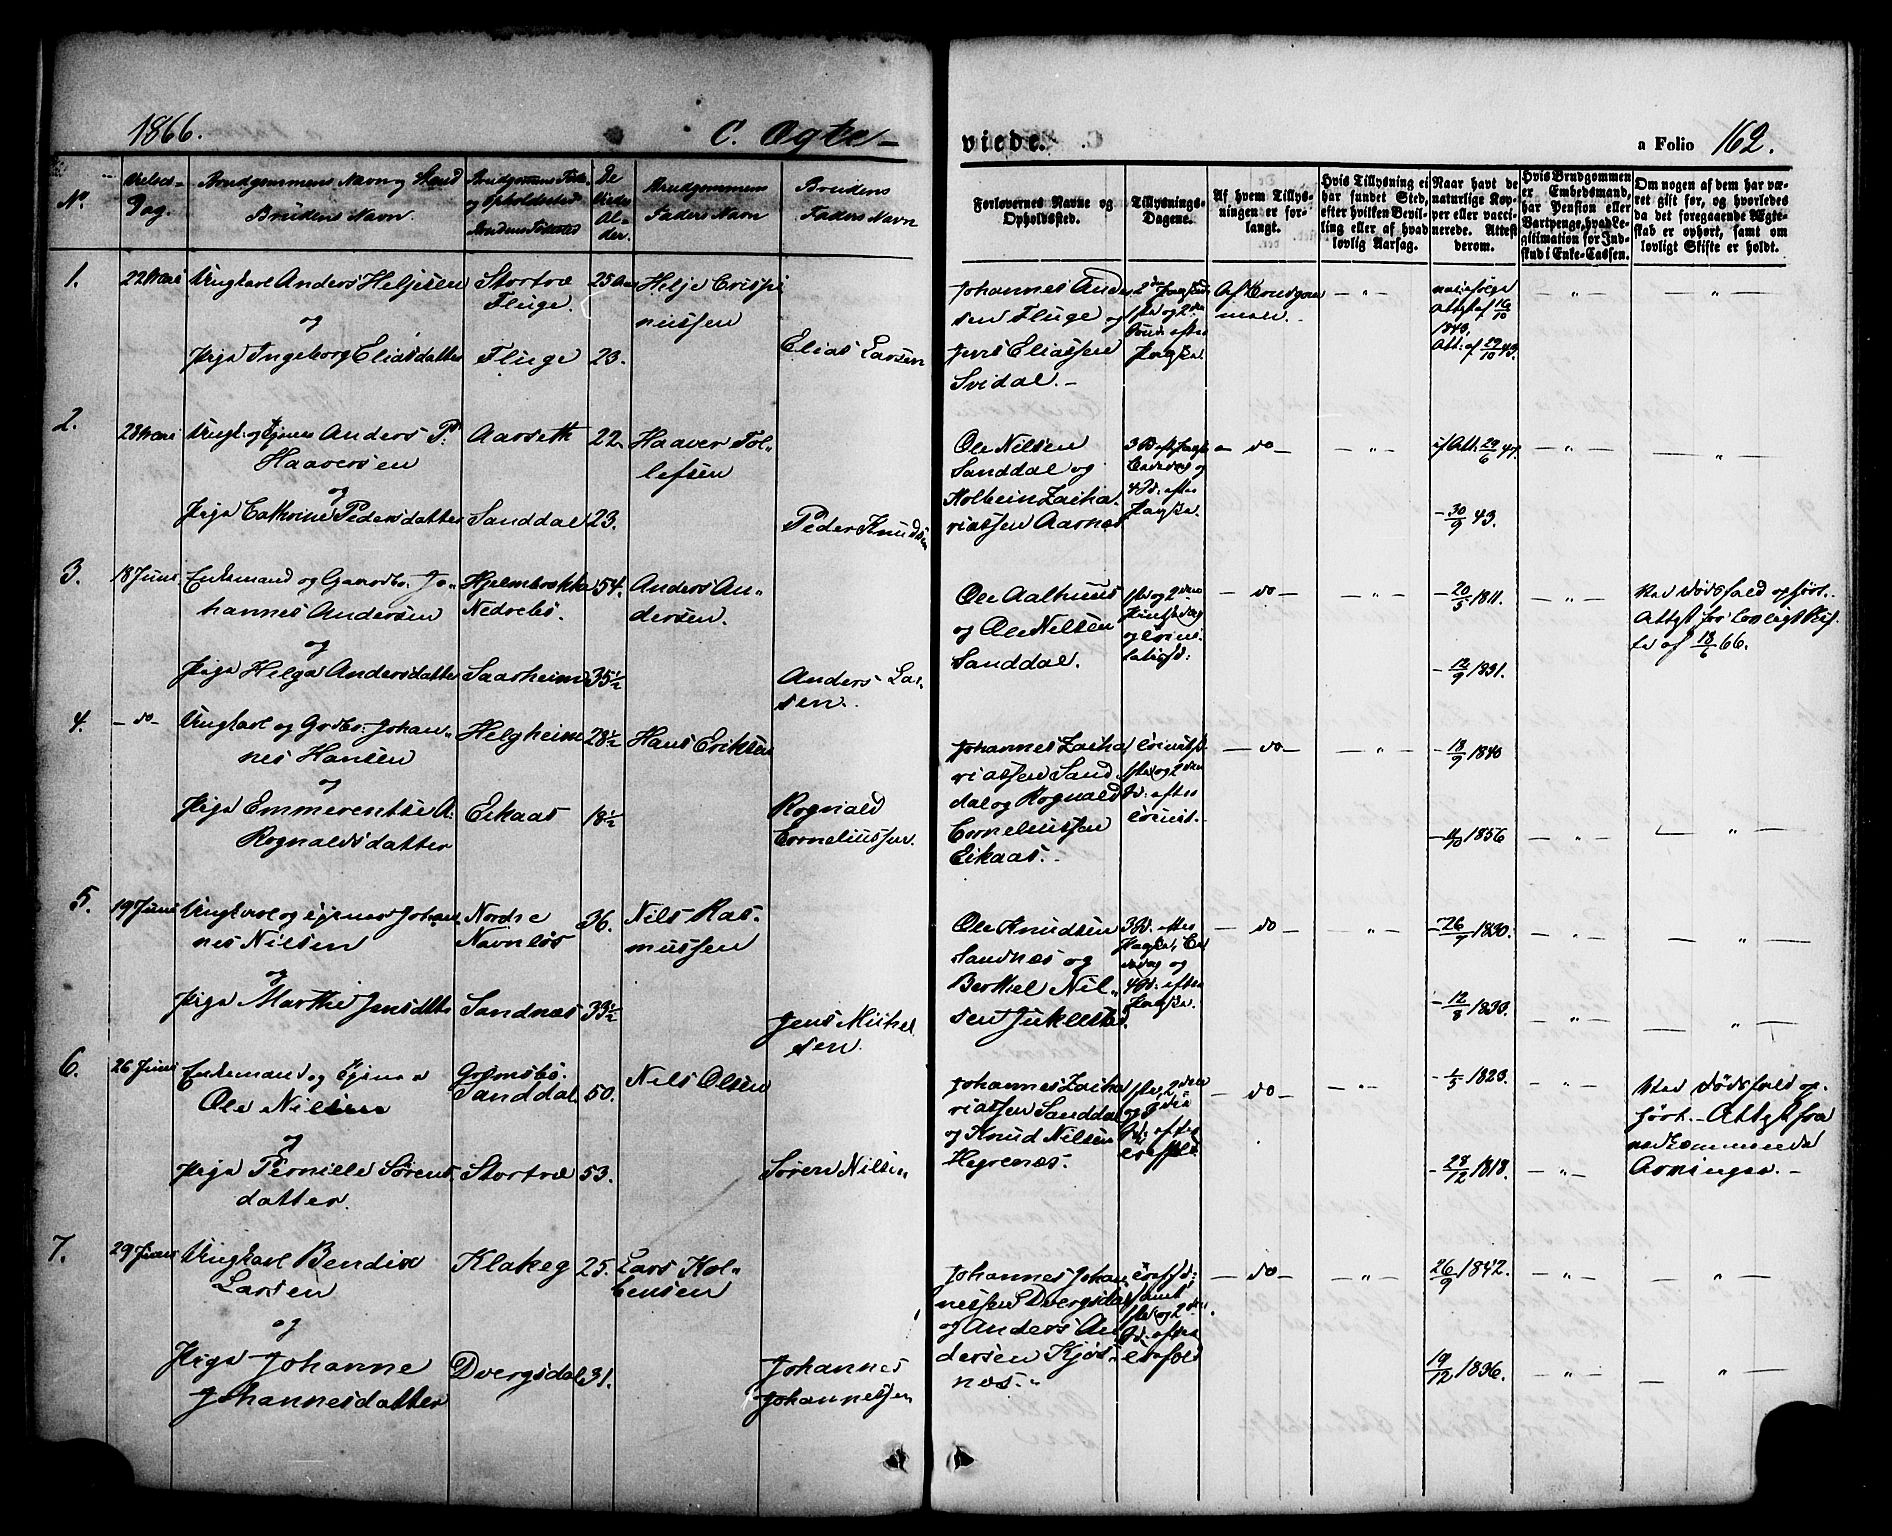 1866.
C. Ægte-
viede.
a Folio 162.
No.
Vielses-
Dag.
Brudgommens Navn og Stand
Brudens Navn.
Brudgommens Føde
og Opholdssted
Brudens Fødested
De
Viedes
Al-
der.
Brudgommens
Faders Navn
Brudens
Faders Navn
Forlovernes Navne og
Opholdssted.
Tillysnings-
Dagene.
Af hvem Tillys-
ningen er for-
langt.
Hvis Tillysning ei
har fundet Sted,
efter hvilken Bevil-
ling eller af hvad
lovlig Aarsag.
Naar havt de
naturlige Kop-
per eller vacci-
nerede. Attest
derom.
Hvis Brudgommen
er Embedsmand,
har Pension eller
Vartpenge, hvad Le-
gitimation for Ind-
skud i Enke-Cassen.
Om nogen af dem har væ-
ret gift før, og hvorledes
da det foregaaende Ægte-
skab er ophørt, samt om
lovligt Skifte er holdt.
1.
Ungkarl Anders Heljesen
og
Pige Ingeborg Eliasdatter
Stortræ
Fluge.
Fluge
25
23.
Helje Crispi
nussen
Elias Larsen
Johannes Ander
sen Fluge og
Jens Eliassen
Svidal. -
Att. af 16/10
1843.
Att: af 29/10 43.
2.
Anders P.
Haaversen
og
Pige Cathrine Pedersdatter
Aarseth
Sanddal
22.
23.
Haaver Tol-
lefsen
Peder Knudsen
Ole Nilsen
Sanddal og
Kolbein Zacha
riassen Aarnes
- do -
Att. 29/6 47.
- 30/9 43.
3.
18 Juni
Enkemand og Gaardbr. Jo-
hannes Andersen
og
Pige Helga Andersdatter
Hjelmbrekke
Nedrebø.
Saarheim
54.
35 1/2
Anders An-
dersen.
Anders Lar-
sen.
Ole Aalhuus
og Ole Nilsen
Sanddal.
- do -
- 20/5 1811.
- 12/9 1831.
Ved Dødsfald ophørt.
Attest for lovligt Skif-
te af 18/6 66.
4.
- do -
Ungkarl og Grdbr: Johan-
nes Hansen
og
Pige Emmerentse A.
Rognaldsdatter
Helgheim
Eikaas
28 1/2
18 1/2
Hans Eriksen
Rognald
Corneliussen.
Johannes Zacha
riassen Sand
dal og Rognald
Corneliussen
Eikaas.
- do -
- 18/9 1840
1856
5.
19 Juni
Ungkarl og Ejener Johan
nes Nilsen
og
Pige Marthe Jensdtter
Nordre
Navnløs
Sandnæs
36.
33 1/2
Nils Ras-
mussen
Jens Michel
sen
Ole Knudsen
Sandnæs og
Berthel Nil-
sen Juklestad.
- do -
- 26/9 1830.
- 12/8 1833.
6.
26 Juni
Enkemand og Ejener
Ole Nilsen
og
Pige Pernille Sørens
datter.
Sanddal
Stortræ
50.
53.
Nils Olsen
Søren Nilsen
Johannes Zacha
riassen Sanddal
og Knud Nilsen
Hegrenæs.
- do -
- 1/5 1823.
- 28/12 1818.
Ved Dødsfald op-
hørt. - Attest fra
vedkommende
Arvinger. -
7.
29 Juni
Ungkarl Bendix
Larsen
og
Pige Johanne
Johannesdatter
Klakeg
Dvergsdal
25.
31.
Lars Kol-
bensen
Johannes
Johannessen
Johannes Johan
nessen Dvergsdal
og Anders An
dersen Kjøs-
næs.
- do -
26/9 1842.
19/12 1836.